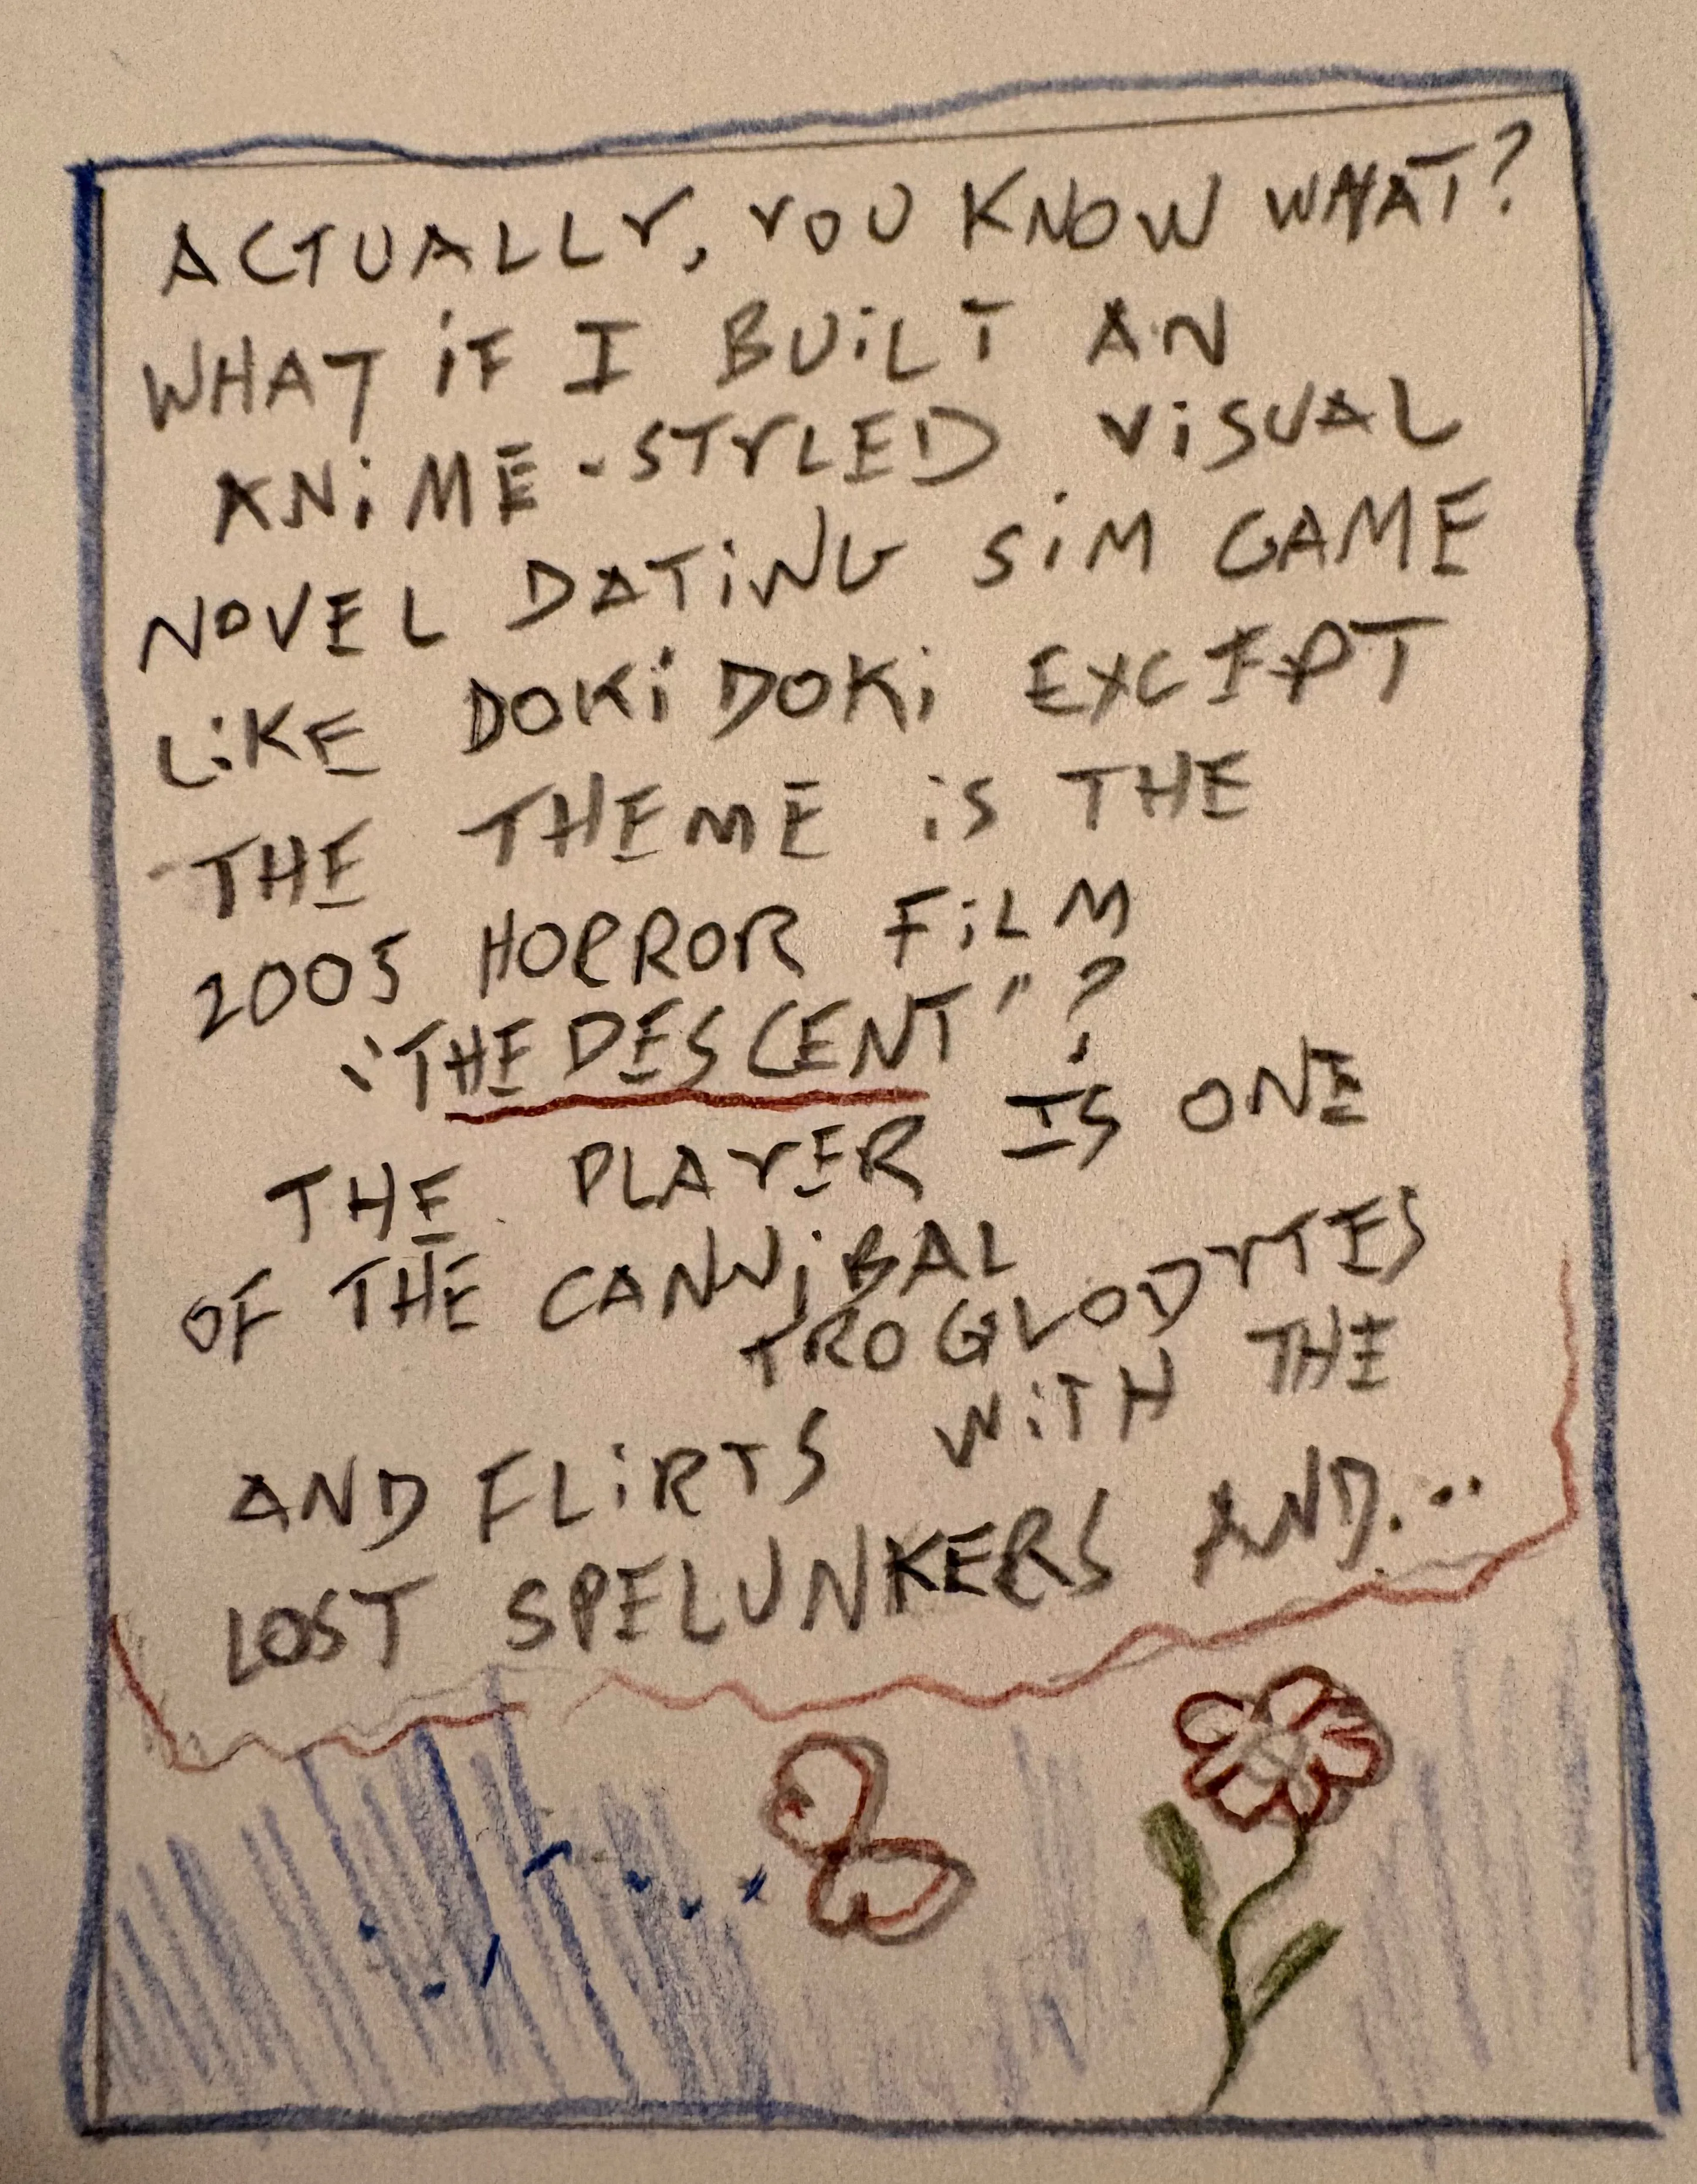 ACTUALLY, YOU KNOW WHAT?
WHAT iF I BUiLT AN
ANiME-STYLED ViSUAL
NOVEL DATiNG SiM GAME
LiKE DOKi DOKi EXCEPT
THE THEME iS THE
2005 HORROR FiLM
"THE DESCENT"?
THE PLAYER IS ONE
OF THE CANNiBAL
TROGLODYTES
AND FLiRTS WiTH THE
LOST SPELUNKERS AND...